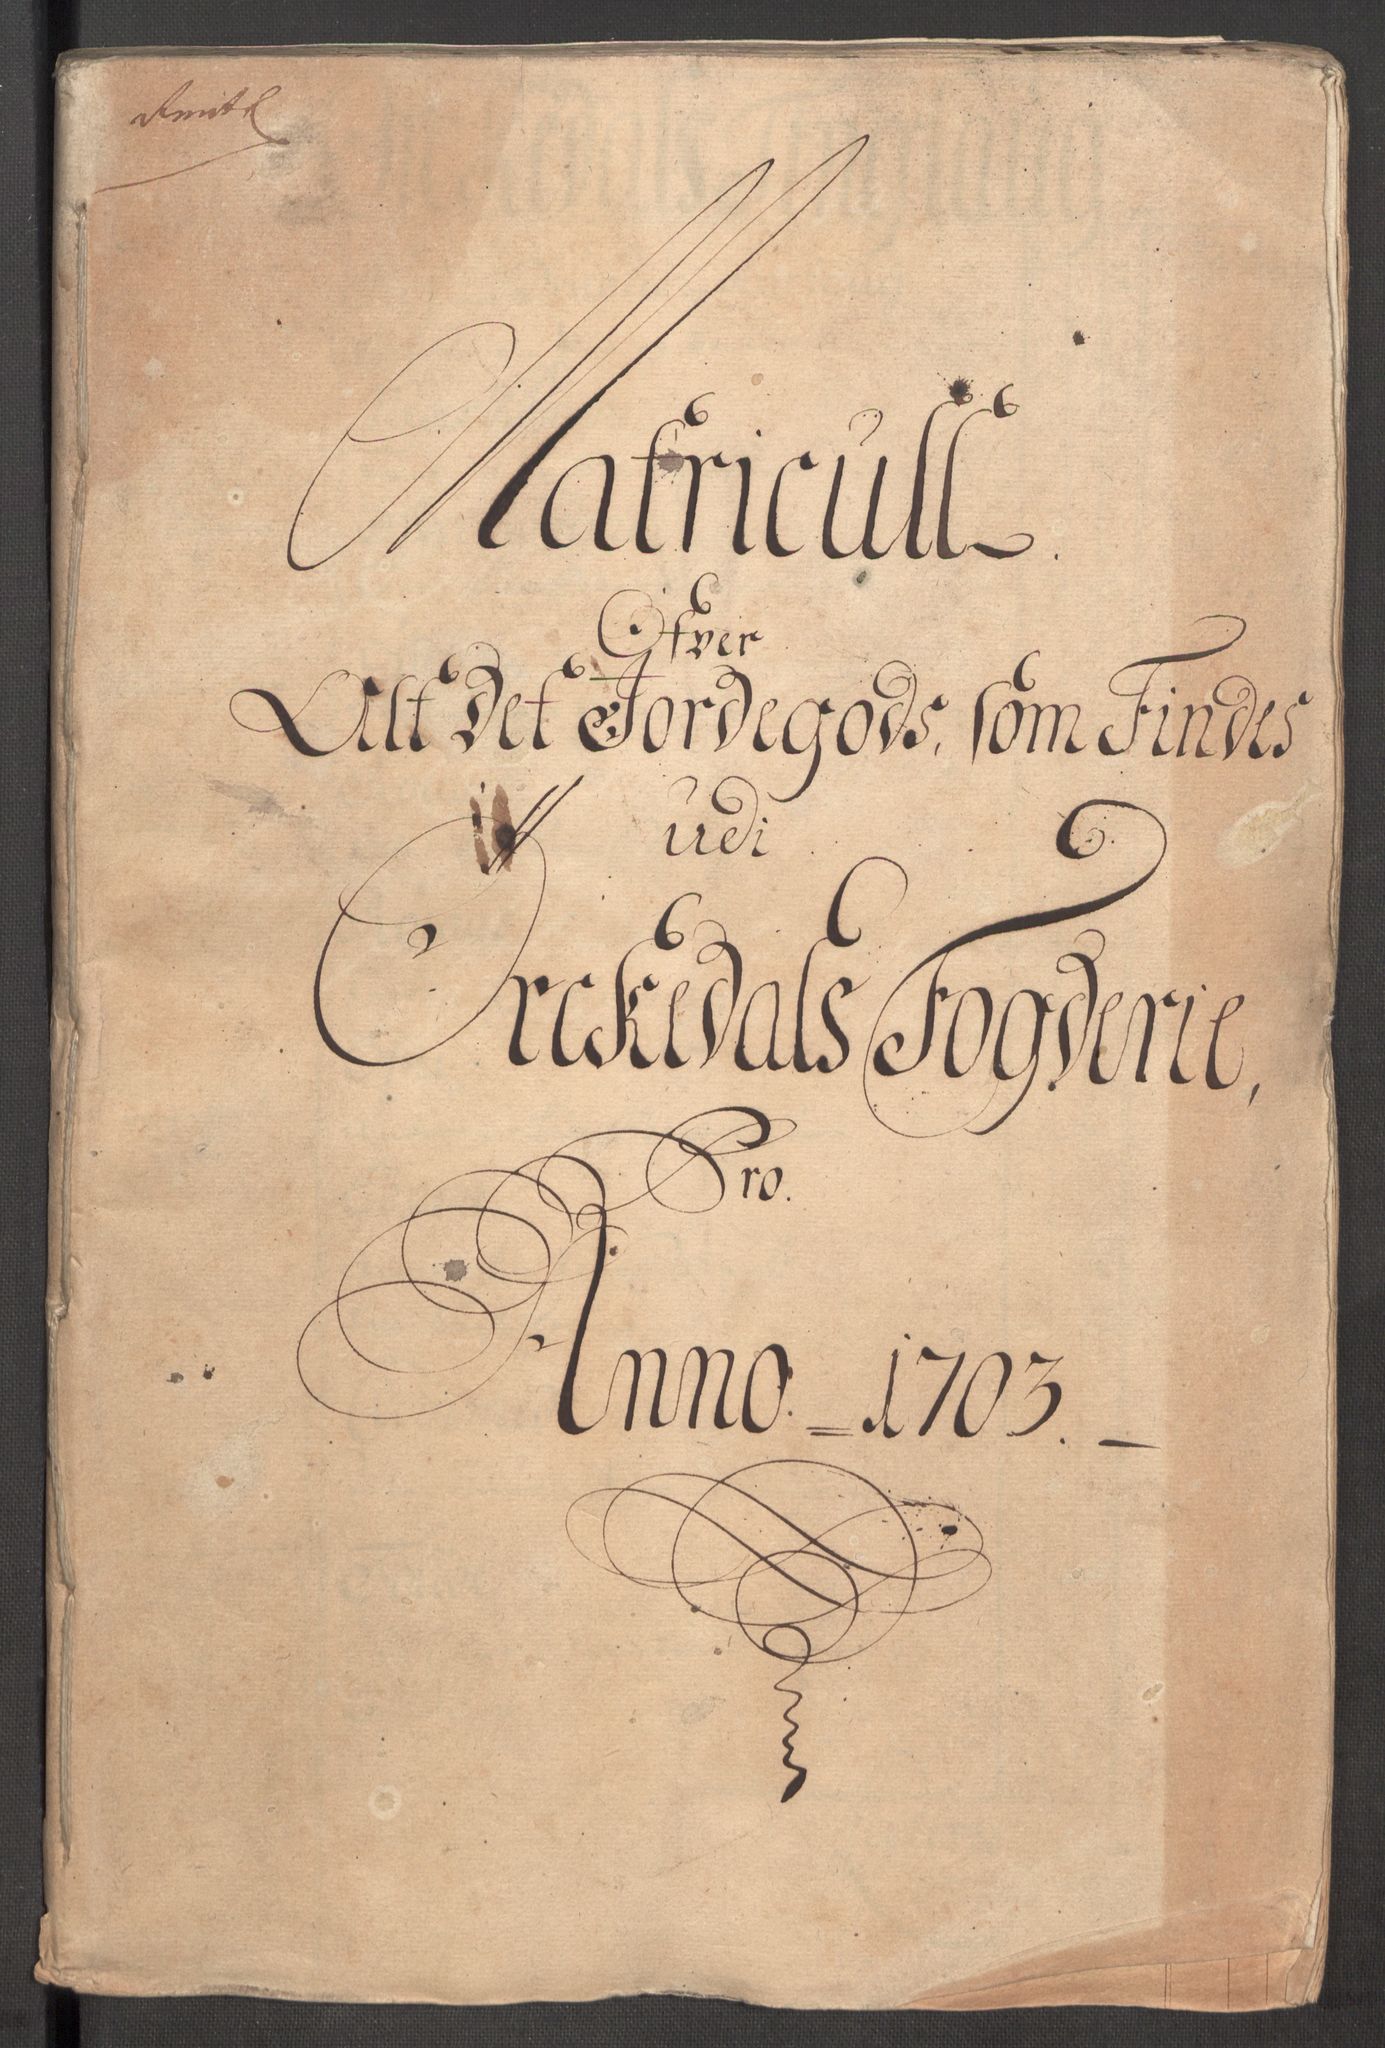 Matricull.
Ofver
Alt det Jordegods, som Findes
udi
Orckedals Fogderie,
Pro.
Anno. = 1703. –